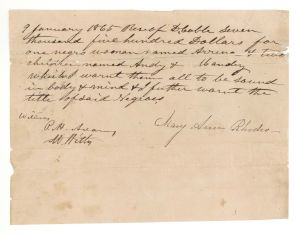 9 January 1865 Rec of D. Cable Seven
thousand five hundred Dollars for
one negro woman named Avrena & two
children named Andy & Mandy
which I warnt them all to be sound
in body & mind & I further warnt the
title of said Negroes
Witness
Mary Ann Rhodes
P. H.
W Witty